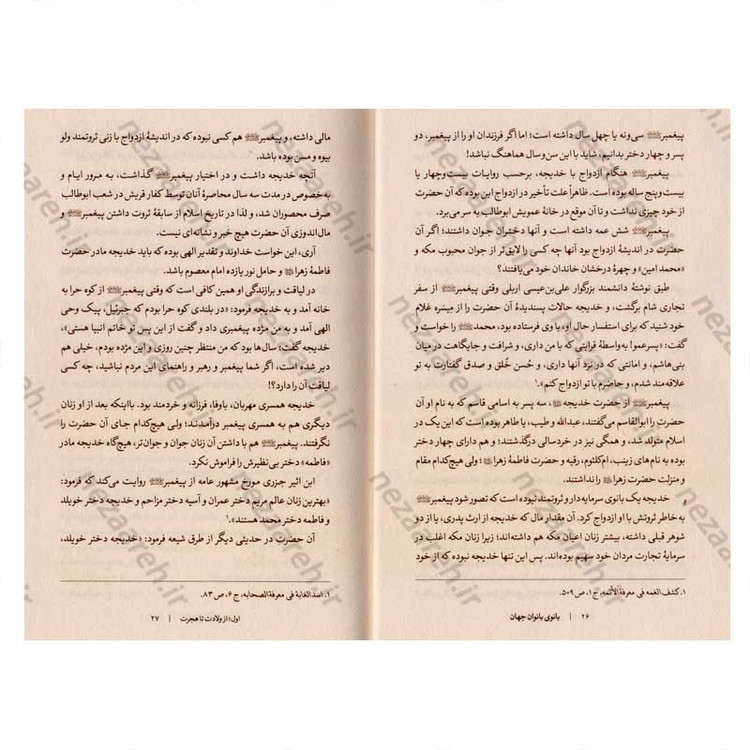 پیغمبرﷺ سی‌ونه یا چهل سال داشته است؛ اما اگر فرزندان او را از پیغمبر، دو
پسر و چهار دختر بدانیم، شاید با این سن‌وسال هماهنگ نباشد!
پیغمبرﷺ هنگام ازدواج با خدیجه، برحسب روایات بیست‌وچهار یا
بیست‌وپنج ساله بوده است. ظاهراً علت تأخیر در ازدواج این بوده که آن حضرت
از خود چیزی نداشت و تا آن موقع در خانهٔ عمویش ابوطالب به سر می‌برد.
پیغمبرﷺ شش عمه داشته است و آنها دختران جوان داشتند؛ اگر آن
حضرت در اندیشهٔ ازدواج بود آنها چه کسی را لایق‌تر از جوان محبوب مکه و
«محمد امین» و چهرهٔ درخشان خاندان خود می‌یافتند؟
طبق نوشتهٔ دانشمند بزرگوار علی‌بن‌عیسی اربلی وقتی پیغمبرﷺ از سفر
تجاری شام برگشت، و خدیجه حالات پسندیدهٔ آن حضرت را از میسره غلام
خود شنید که برای استفسار حال او، با وی فرستاده بود، محمدﷺ را خواست و
گفت: «پسرعمو! به‌واسطهٔ قرابتی که با من داری، و شرافت و جایگاهت در میان
بنی‌هاشم، و امانتی که در نزد آنها داری، و حُسن خُلق و صدق گفتارت به تو
علاقه‌مند شدم، و حاضرم با تو ازدواج کنم.¹
پیغمبرﷺ از حضرت خدیجه، سه پسر به اسامی قاسم که به نام او آن
حضرت را ابوالقاسم می‌گفتند، عبدالله و طیب، یا طاهر بوده است که این یک در
اسلام متولد شد، و همگی نیز در خردسالی درگذشتند؛ و هم دارای چهار دختر
بوده به نام‌های زینب، ام‌کلثوم، رقیه و حضرت فاطمهٔ زهرا؛ ولی هیچ‌کدام مقام
و منزلت حضرت زهرا را نداشتند.
خدیجه یک بانوی سرمایه‌دار و ثروتمند نبوده است که تصور شود پیغمبرﷺ
به خاطر ثروتش با او ازدواج کرد. آن مقدار مال که خدیجه از ارث پدری، یا از دو
شوهر قبلی داشته، بیشتر زنان اعیان مکه هم داشته‌اند؛ زیرا زنان مکه اغلب در
سرمایهٔ تجارت مردان خود سهیم بوده‌اند. پس این تنها خدیجه نبوده که از خود
۱. کشف الغمه فی معرفة الأئمه، ج ۱، ص ۵۰۹.
۲۶ | بانوی بانوان جهان
مالی داشته، و پیغمبرﷺ هم کسی نبوده که در اندیشهٔ ازدواج با زنی ثروتمند ولو
بیوه و مسن بوده باشد.
آنچه خدیجه داشت و در اختیار پیغمبرﷺ گذاشت، به مرور ایام و
به‌خصوص در مدت سه سال محاصرهٔ آنان توسط کفار قریش در شعب ابوطالب
صرف محصوران شد، و لذا در تاریخ اسلام از سابقهٔ ثروت داشتن پیغمبرﷺ و
مال‌اندوزی آن حضرت هیچ خبر و نشانه‌ای نیست.
آری، این خواست خداوند و تقدیر الهی بوده که باید خدیجه مادر حضرت
فاطمهٔ زهرا و حامل نور یازده امام معصوم باشد.
در لیاقت و برازندگی او همین کافی است که وقتی پیغمبرﷺ از کوه حرا به
خانه آمد و به خدیجه فرمود: «در بلندی کوه حرا بودم که جبرئیل، پیک وحی
الهی آمد و به من مژده پیغمبری داد و گفت از این پس تو خاتم انبیا هستی»،
خدیجه گفت: سال‌ها بود که من منتظر چنین روزی و این مژده بودم، خیلی هم
دیر شده است، اگر شما پیغمبر و رهبر و راهنمای این مردم نباشید، چه کسی
لیاقت آن را دارد؟!
خدیجه همسری مهربان، باوفا، فرزانه و خردمند بود. بااینکه بعد از او زنان
دیگری هم به همسری پیغمبر درآمدند؛ ولی هیچ‌کدام جای آن حضرت را
نگرفتند. پیغمبرﷺ هم با داشتن آن زنان جوان و جوان‌تر، هیچ‌گاه خدیجه مادر
«فاطمه» دختر بی‌نظیرش را فراموش نکرد.
ابن اثیر جزری مورخ مشهور عامه از پیغمبرﷺ روایت می‌کند که فرمود:
«بهترین زنان عالم مریم دختر عمران و آسیه دختر مزاحم و خدیجه دختر خویلد
و فاطمه دختر محمد هستند».¹
آن حضرت در حدیثی دیگر از طرق شیعه فرمود: «خدیجه دختر خویلد،
۱. اسد الغابة فی معرفة الصحابه، ج ۶، ص ۸۳.
اول؛ از ولادت تا هجرت | ۲۷
nezaareh.ir